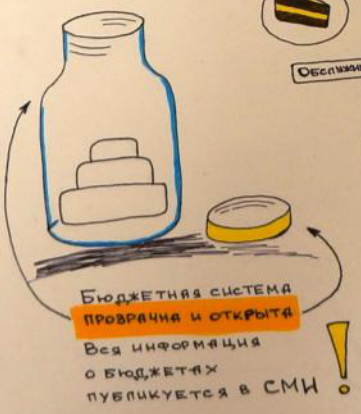 Бюджетная система
прозрачна и открыта
Вся информация
о бюджетах
публикуется в СМИ!